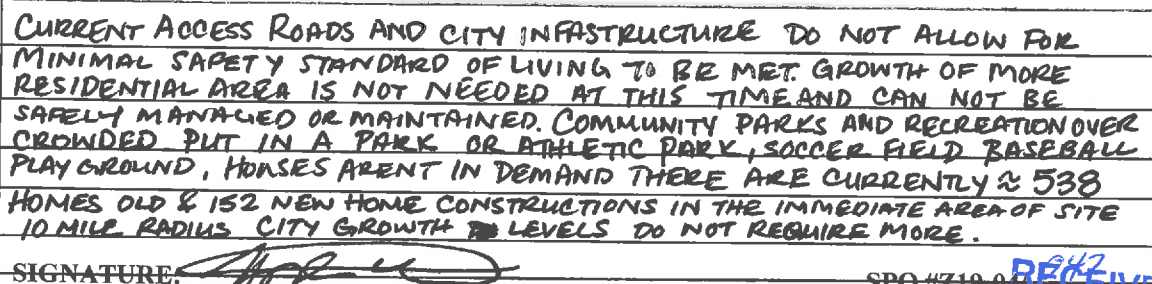 CURRENT ACCESS ROADS AND CITY INFASTRUCTURE DO NOT ALLOW FOR
MINIMAL SAFETY STANDARD OF LIVING TO BE MET. GROWTH OF MORE
RESIDENTIAL AREA IS NOT NEEDED AT THIS TIME AND CAN NOT BE
SAFELY MANAGED OR MAINTAINED. COMMUNITY PARKS AND RECREATION OVER
CROWDED PUT IN A PARK OR ATHLETIC PARK, SOCCER FIELD BASEBALL
PLAY GROUND, HOUSES ARENT IN DEMAND THERE ARE CURRENTLY ≈ 538
HOMES OLD & 152 NEW HOME CONSTRUCTIONS IN THE IMMEDIATE AREA OF SITE
10 MILE RADIUS CITY GROWTH LEVELS DO NOT REQUIRE MORE.
SIGNATURE: